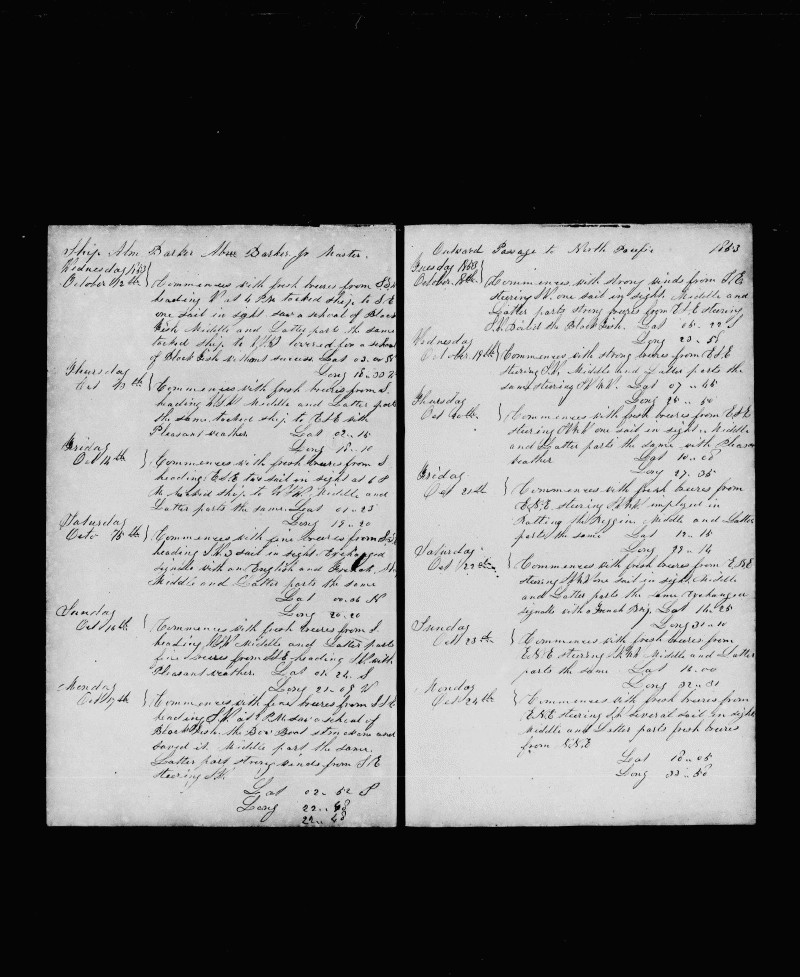 Ship Abm Barker Abm Barker Jr Master.
Wednesday 1853
October 12th } Commences with fresh breezes from S.S.E
heading W at 4 PM tacked ship to S.E
one sail in sight saw a school of Black
Fish Middle and Latter part the same
tacked ship to lowered for a school
of Black Fish without success. Lat 03.00 N
Long 18.30 W
Thursday
Oct 13th } Commences with fresh breezes from S.
heading W.S.W Middle and Latter part
the same tacked ship to E.S.E with
Pleasant weather Lat 02.15
Long 18.10
Friday
Oct 14th } Commences with fresh breezes from S
heading E.S.E two sail in sight at 6 P
M. tacked ship to Middle and
Latter parts the same. Lat 01.23
Long 19.20
Saturday
Octo 15th } Commences with fine breezes from S.S.E
heading S.W. 3 sail in sight. Exchanged
signals with an English and French Ship
Middle and Latter parts the same
Lat 00.06 N
Long 20.20
Sunday
Oct 16th } Commences with fresh breezes from S
heading Middle and Latter parts
fine breezes from heading S.W. with
Pleasant weather. Lat 01.24. S
Long 21.08 W
Monday
Oct 17th } Commences with fine breezes from S.S.E
heading S.W at 1 P.M. saw a school of
Black Fish. the Bow Boat struck one and
saved it. Middle part the same.
Latter part strong winds from S.E
steering S.W.
Lat 02.52 S
Long 22.48
22.48
Outward Passage to North Pacific 1853
Tuesday 1853
October 18th } Commences with strong winds from S.E
steering S.W. one sail in sight. Middle and
Latter parts strong breezes from E.S.E steering
S.W. Boiled the Black Fish. Lat 05.22 S
Long 23.58
Wednesday
October 19th } Commences with strong breezes from E.S.E
steering S.W. Middle and Latter parts the
same steering Lat 07.45
Long 25.50
Thursday
Oct 20th } Commences with fresh breezes from E.S.E
steering one sail in sight. Middle
and Latter parts the same with Pleasant
weather Lat 10.08
Long 27.35
Friday
Oct 21st } Commences with fresh breezes from
E.N.E. steering employed in
Ratling the Riggin. Middle and Latter
parts the same Lat 12.15
Long 29.14
Saturday
Oct 22nd } Commences with fresh breezes from E.N.E
steering one sail in sight. Middle
and Latter parts the same Exchanged
signals with a French Brig. Lat 14.25
Long 31.10
Sunday
Oct 23rd } Commences with fresh breezes from
E.N.E. steering Middle and Latter
parts the same Lat 16.00
Long 32.31
Monday
Oct 24th } Commences with fresh breezes from
E.N.E steering S.W. several sail in sight
Middle and Latter parts fresh breezes
from N.N.E
Lat 18.05
Long 33.58